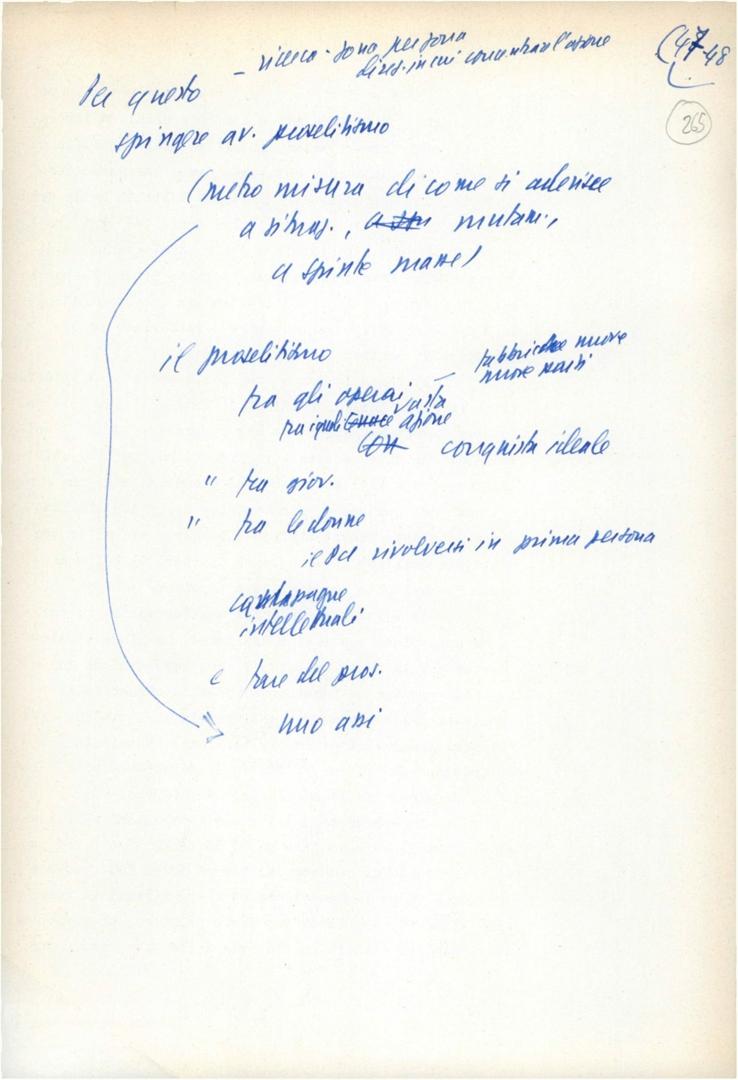 (47-48
265
Per questo – ricerca - zona persona
direz. in cui concentrare l'azione
spingere av. proselitismo
(metro misura di come si aderisce
a situaz., mutam.,
a spinte masse)
il proselitismo
tra gli operai – fabbriche nuove
nuove
tra i quali vasta azione
conquista ideale
" tra giov.
" tra le donne
il Pci rivolversi in prima persona
campagne
intellettuali
e fare del pros.
uno assi